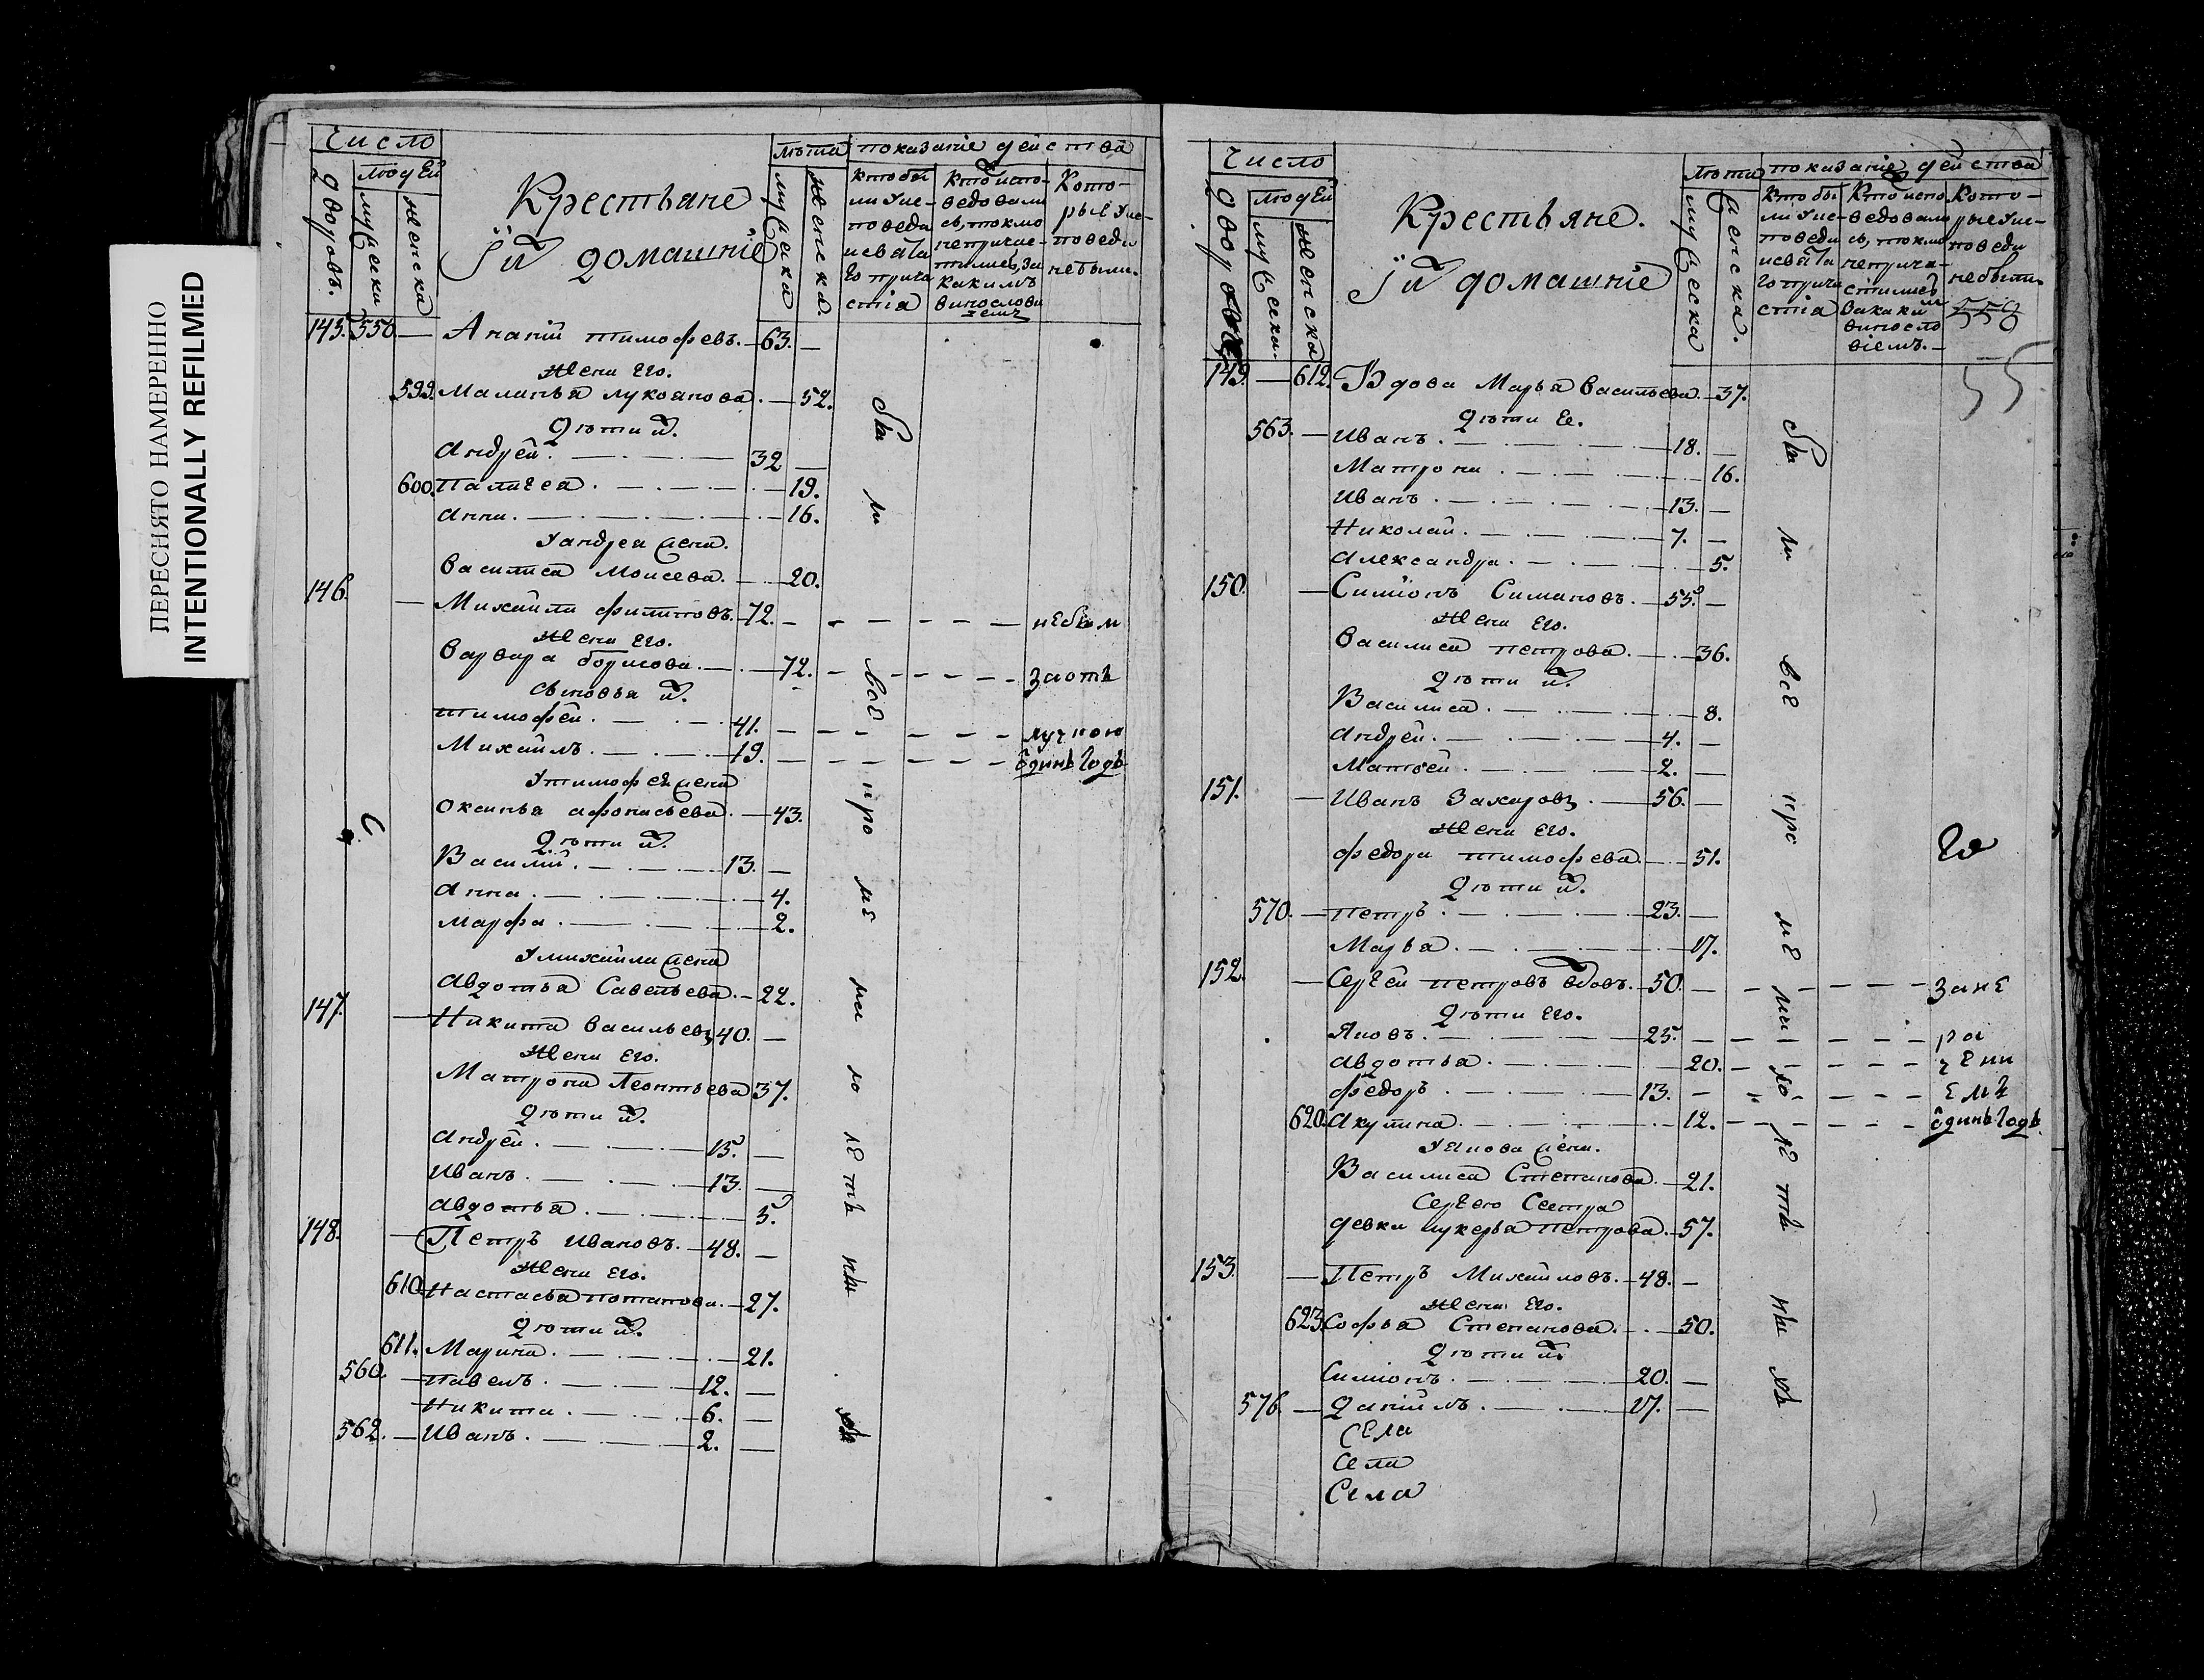 ПЕРЕСНЯТО НАМЕРЕННО
INTENTIONALLY REFILMED
Число
дворовъ.
людей
муҗеска
женска
Крестьяне
їи домашніе
лѣта
муҗеска
женска.
показаніе действа
кто бы
ли уис
поведи
исвѧта
го прича
стіа
кто испо-
ведовали
сь, токмо
непричас-
тились, за
какимъ
винослови
емъ
Кото-
рые уис-
поведи
небыли.
145. 550. — Ананій тимофевъ. — 63. —
жена его.
599. Маланья лукоянова. — 52.
дѣти их.
андрей. — 32 —
600. палагея. — 19.
анна. — 16.
уандрея жена.
василиса моисева. — 20.
146. — Михайла филиповъ. 72. — небыли
жена его.
варвара борисова. — 72. — заотъ
сыновья их.
тимофей. — 41. — лучкою
Михайлъ. — 19. — одинъ годъ
утимофея жена
оксинья афонасьева. — 43.
дѣти их.
Василій. — 13. —
анна. — 4.
марфа. — 2.
умихайла жена
авдотья Савельева. — 22.
147. — Никита васильевъ 40. —
жена его.
Матрона Леонтьева 37.
дѣти их.
андрей. — 15. —
иванъ. — 13. —
авдотья. — 5.
148. — Петръ ивановъ. — 48. —
жена его.
610 настасья потапова. — 27.
дѣти их.
611. Марина. — 21.
560. — павелъ. — 12. —
никита. — 6. —
562. — иванъ. — 2. —
бы
ли
всѣ
кро
мѣ
ма
ло
лѣ
тн
Число
людей
муҗеска.
женска
Крестьяне.
їи домашніе
лѣта
муҗеска
женска.
показаніе действа
кто бы
ли уис-
поведи
исвѧта
го прича
стіа
Кто испо
ведовали
сь, токмо
неприча-
стились
за каким
винослo
віемъ. —
кото-
рые уис-
поведи
небыли.
55
149. — 612. Вдова Марья васильева. — 37.
дѣти ее.
563. — иванъ. — 18. —
Матрона. — 16.
иванъ. — 13. —
николай. — 7. —
александра. — 5.
150. — Симіонъ Симановъ. — 55. —
жена его.
василиса петрова. — 36.
дѣти их.
Василиса. — 8.
андрей. — 4. —
Матвей. — 2. —
151. — иванъ захаровъ. — 56. —
жена его.
федора тимофева. — 51.
дѣти их.
570. — петръ. — 23. —
Марья. — 17.
152. — Сергей петровъ вдовъ. — 50. — зане
дѣти его.
Яковъ. — 25. — ра
авдотья. — 20. — чени
федоръ. — 13. — емъ
620. акулина. — 12. — одинъ годъ
уякова жена.
Василиса Степанова. — 21.
Сергею Сестра
девка лукерья петрова. — 57.
153. — Петръ Михайловъ. — 48. —
жена его.
623. Софья Степанова. — 50.
дѣти их.
Симіонъ. — 20. —
576. — даніилъ. — 17. —
села
села
села
бы
ли
всѣ
кро
мѣ
ма
ло
лѣ
тн